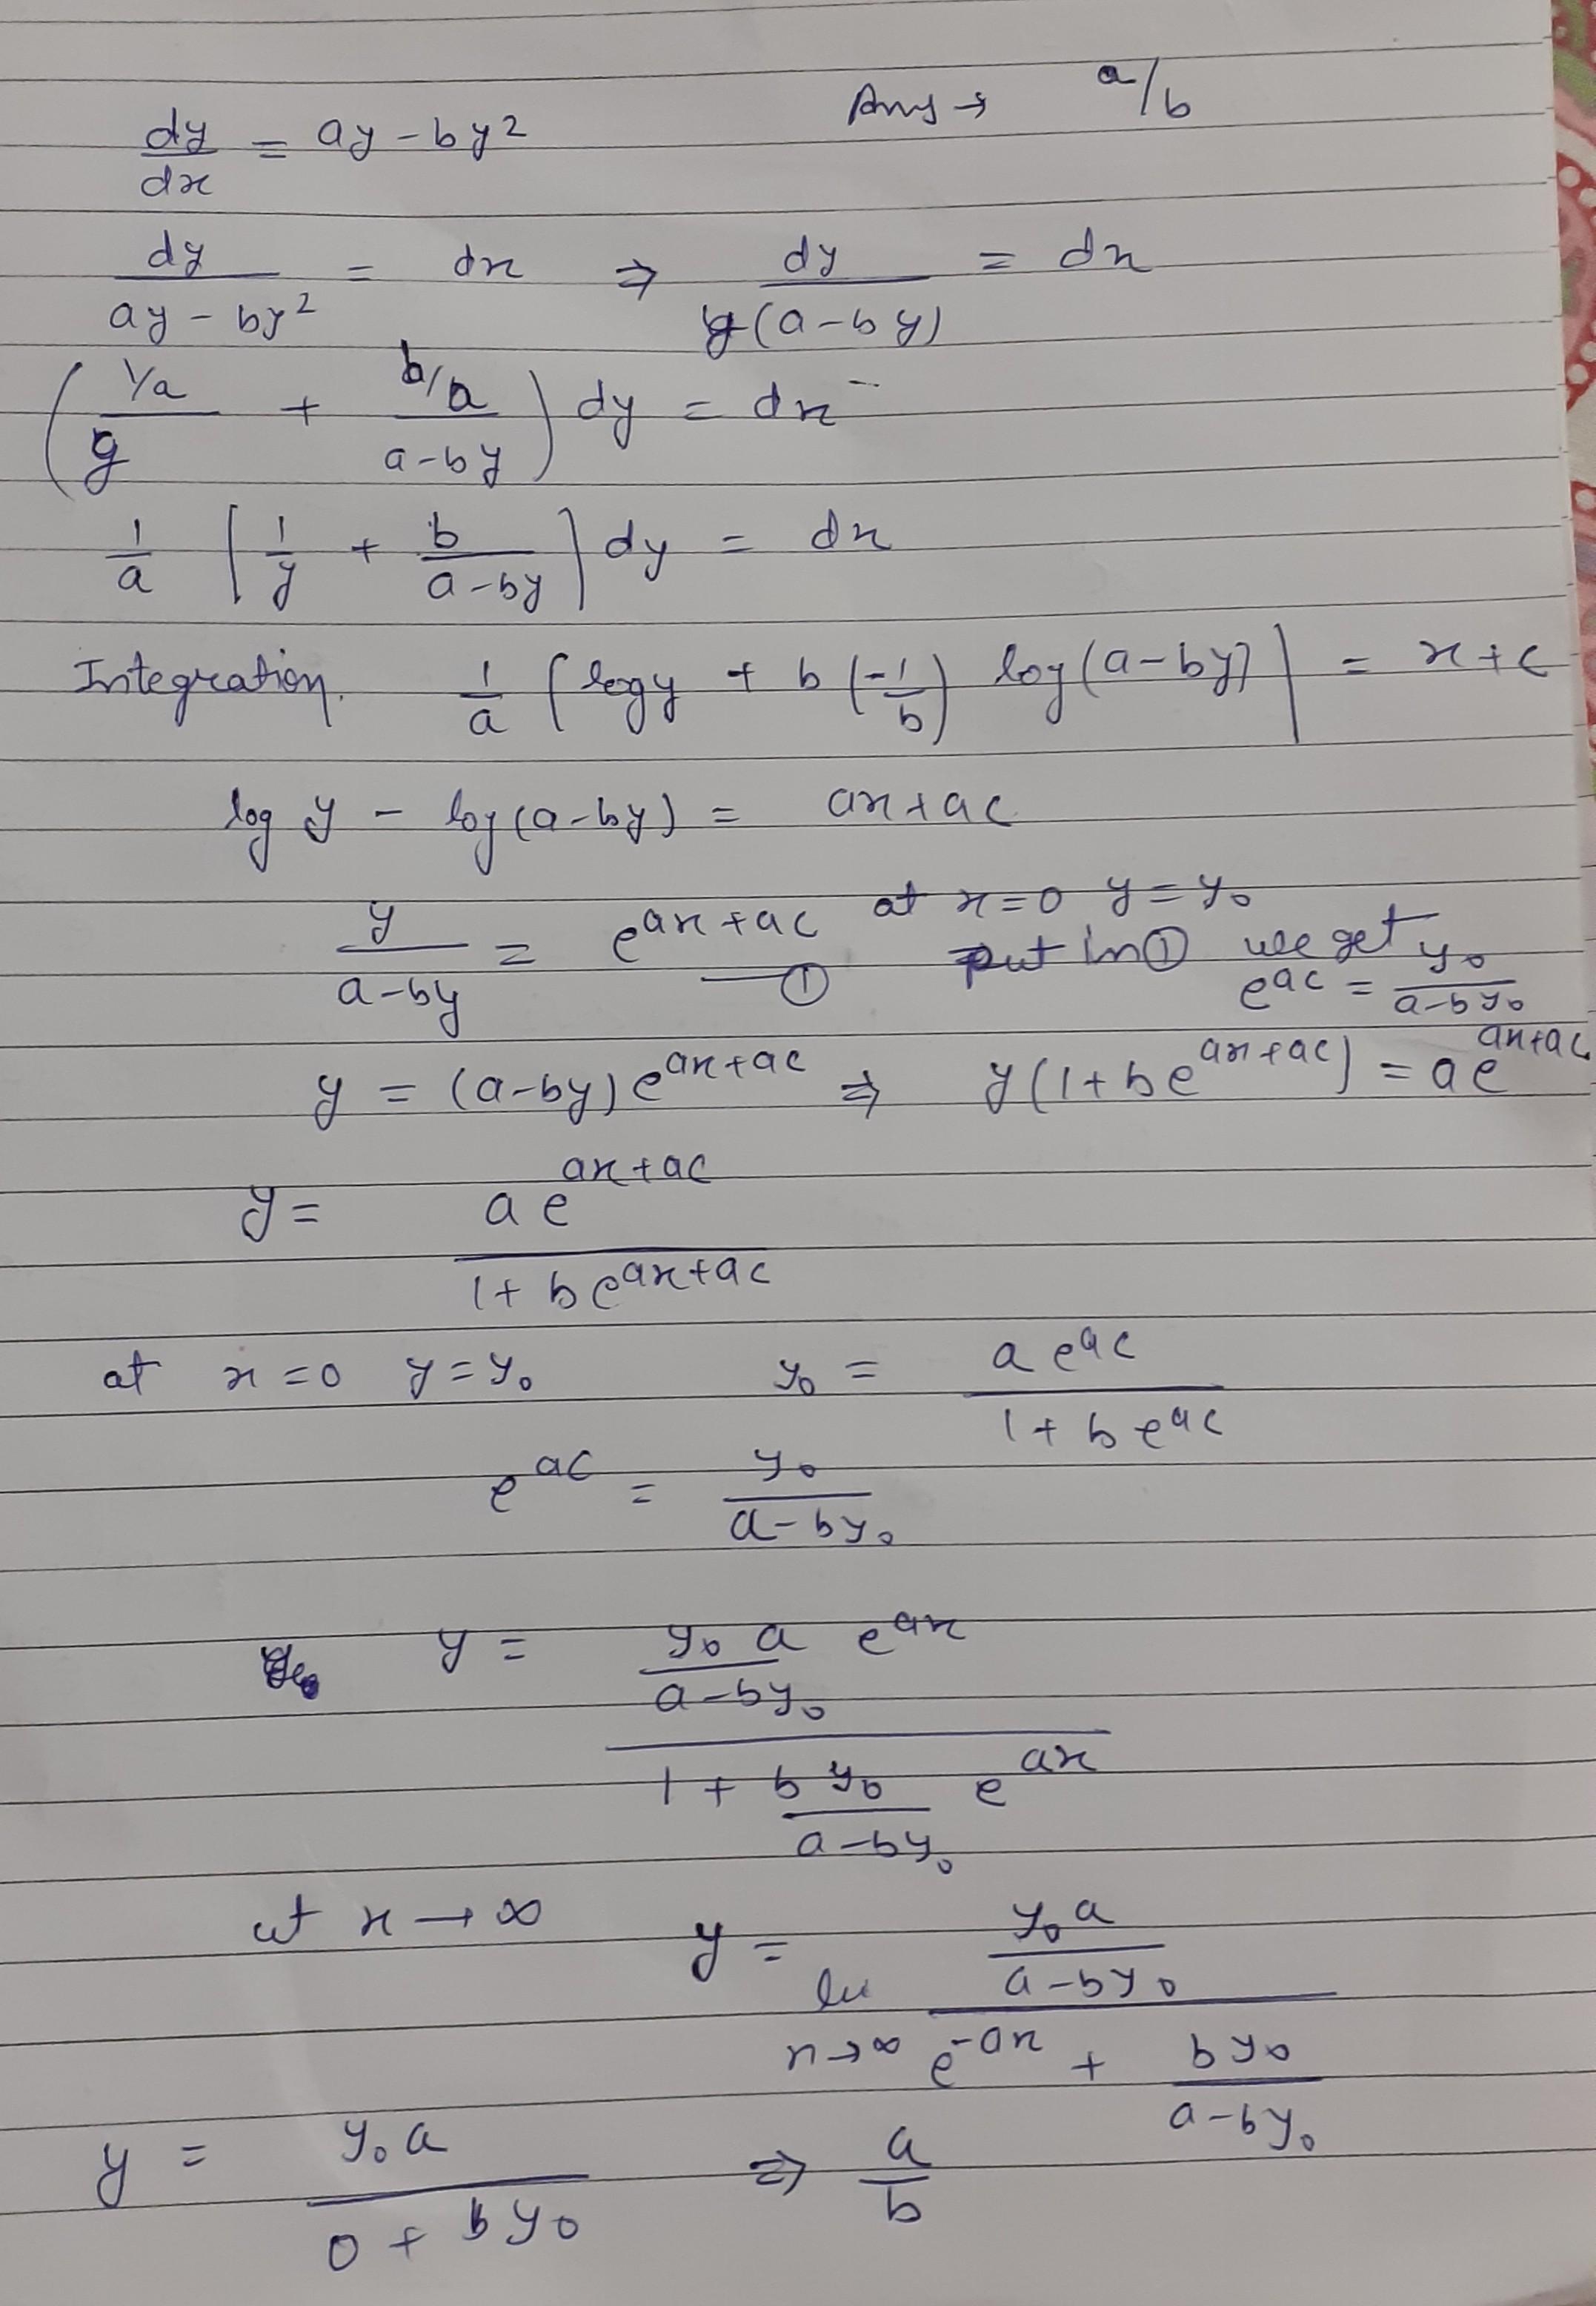 Ans → a/b
dy/dx = ay - by²
dy/(ay - by²) = dx ⇒ dy/(y(a-by)) = dx
((1/a)/y + (b/a)/(a-by)) dy = dx
1/a [1/y + b/(a-by)] dy = dx
Integration. 1/a [log y + b(-1/b) log(a-by)] = x+c
log y - log(a-by) = ax+ac
y/(a-by) = e^(ax+ac) —① at x=0 y=y₀
put in ① we get
e^(ac) = y₀/(a-by₀)
y = (a-by)e^(ax+ac) ⇒ y(1+be^(ax+ac)) = ae^(ax+ac)
y = ae^(ax+ac)/(1+be^(ax+ac))
at x=0 y=y₀ y₀ = ae^(ac)/(1+be^(ac))
e^(ac) = y₀/(a-by₀)
y = ((y₀a/(a-by₀)) e^(ax))/(1 + (by₀/(a-by₀)) e^(ax))
at x→∞ y = li x→∞ (y₀a/(a-by₀))/(e^(-ax) + by₀/(a-by₀))
y = y₀a/(0+by₀) ⇒ a/b